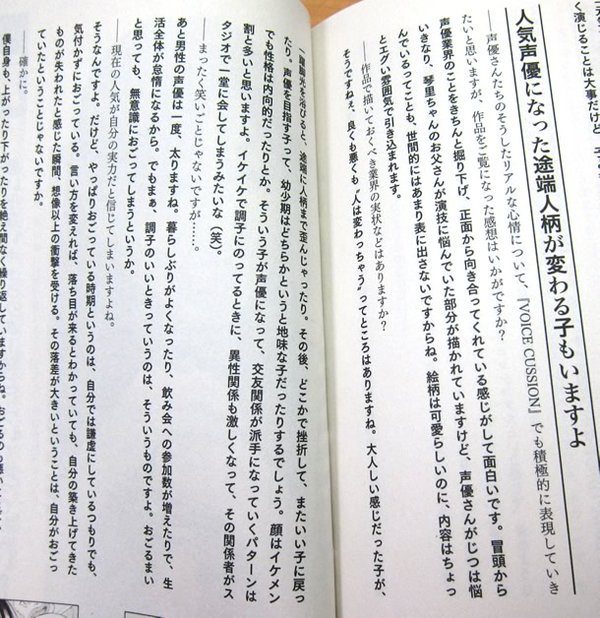 く演じることは大事だけど、
人気声優になった途端人柄が変わる子もいますよ
――声優さんたちのそうしたリアルな心情について、『VOICE CUSSION』でも積極的に表現していき
たいと思いますが、作品をご覧になった感想はいかがですか？
声優業界のことをきちんと掘り下げ、正面から向き合ってくれている感じがして面白いです。冒頭から
いきなり、琴里ちゃんのお父さんが演技に悩んでいた部分が描かれていますけど、声優さんがじつは悩
んでいるってことも、世間的にはあまり表に出さないですからね。絵柄は可愛らしいのに、内容はちょっ
とエグい雰囲気で引き込まれます。
――作品で描いておくべき業界の実状などはありますか？
そうですねぇ、良くも悪くも〝人は変わっちゃう〟ってところはありますね。大人しい感じだった子が、
一度脚光を浴びると、途端に人柄まで歪んじゃったり。その後、どこかで挫折して、またいい子に戻っ
たり。声優を目指す子って、幼少期はどちらかというと地味な子だったりするでしょう。顔はイケメン
でも性格は内向的だったりとか。そういう子が声優になって、交友関係が派手になっていくパターンは
割と多いと思いますよ。イケイケで調子にのってるときに、異性関係も激しくなって、その関係者がス
タジオで一堂に会してしまうみたいな（笑）。
――まったく笑いごとじゃないですが……。
あと男性の声優は一度、太りますね。暮らしぶりがよくなったり、飲み会への参加数が増えたりで、生
活全体が怠惰になるから。でもまぁ、調子のいいときっていうのは、そういうものですよ。おごるまい
と思っても、無意識におごってしまうというか。
――現在の人気が自分の実力だと信じてしまいますよね。
そうなんですよ。だけど、やっぱりおごっている時期というのは、自分では謙虚にしているつもりでも、
気付かずにおごっている。言い方を変えれば、落ち目が来るとわかっていても、自分の築き上げてきた
ものが失われたと感じた瞬間、想像以上の衝撃を受ける。その落差が大きいということは、自分がおごっ
ていたということじゃないですか。
――確かに。
僕自身も、上がったり下がったりを絶え間なく繰り返していますからね。